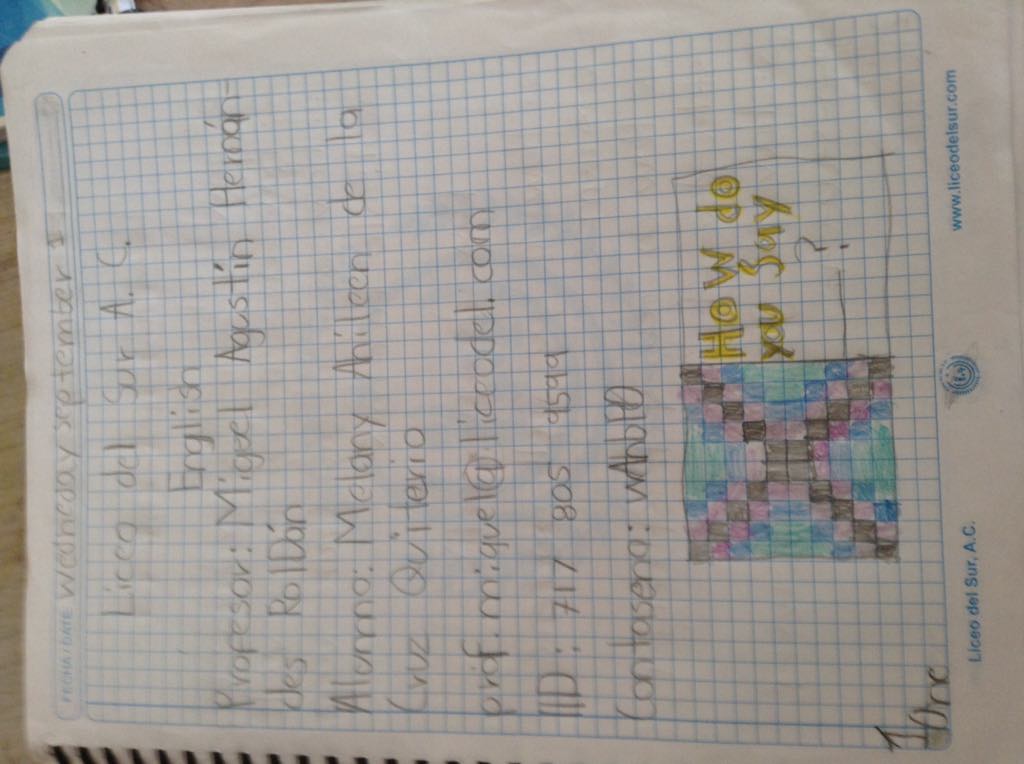 FECHA / DATE Wednesday september 1
Liceo del Sur A. C.
English
Profesor: Miguel Agustín Hernán-
des RolDán
Alumno: Melany Ahileen de la
Cruz Quiterio
prof.miguel@liceodel.com
ID: 717 805 9599
Contaseña:
How do
you Say
?
Liceo del Sur, A.C.
www.liceodelsur.com